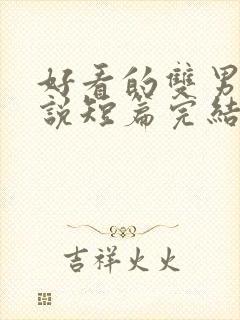 好看的雙男
說短篇完結
吉祥火火